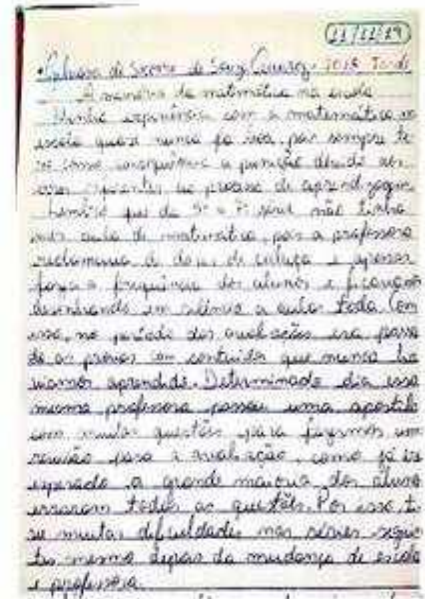 11/11/19
de Souza Queiroz - 2018 Tarde
A memória da matemática na escola
Minha experiência com a matemática na
escola quase nunca foi boa, pois sempre ti
ve como consequência a punição devido aos
erros no processo de aprendizagem
Lembro que da 5ª a 7ª série não tinha
aula de matemática, pois a professora
reclamava de dores de cabeça e apenas
fazia a frequência dos alunos e ficávamos
desenhando em silêncio a aula toda. Com
isso, no período das avaliações era passa
do as provas com conteúdos que nunca ha
víamos aprendido. Determinado dia essa
mesma professora passou uma apostila
com muitas questões para fazermos uma
revisão para a avaliação, como já era
esperado a grande maioria dos alunos
erraram todas as questões. Por isso ti
ve muitas dificuldades nas séries seguin
tes mesmo depois da mudança de escola
e professora.